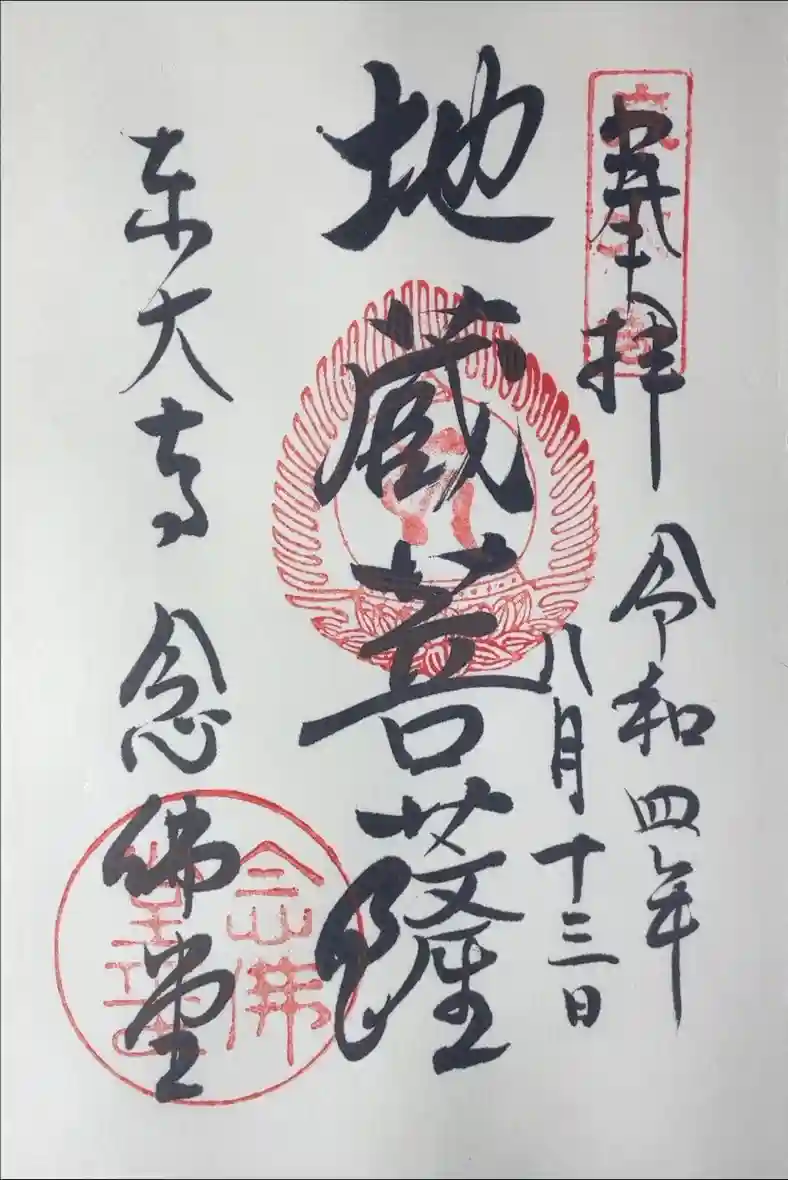 奉拝
令和四年
八月十三日
地蔵菩薩
东大寺 念佛堂
念佛
堂印